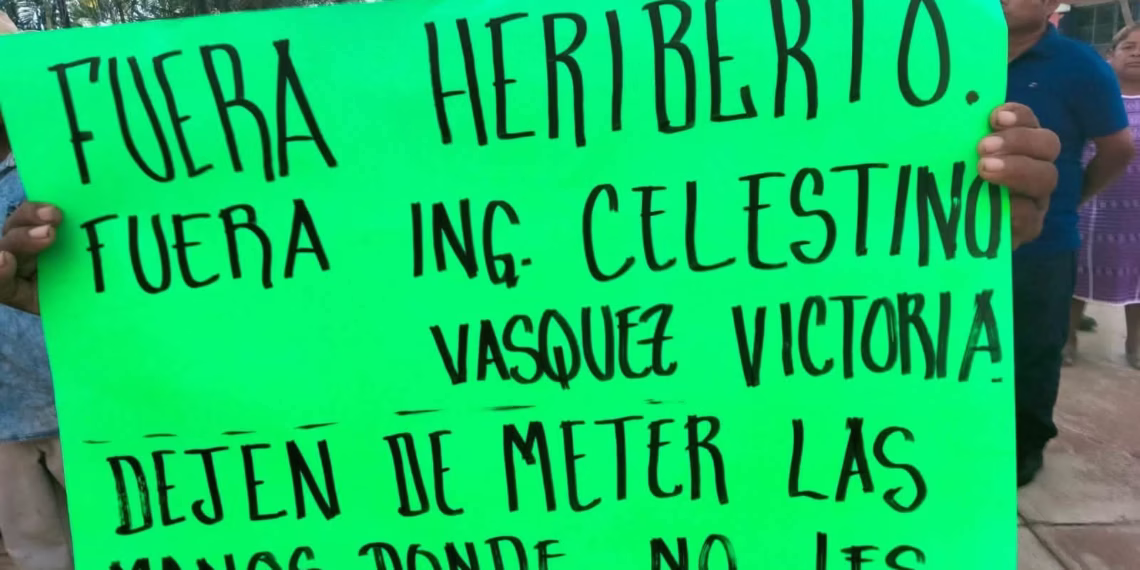 FUERA HERIBERTO.
FUERA ING. CELESTINO
VASQUEZ VICTORIA
DEJEN DE METER LAS
MANOS DONDE NO LES